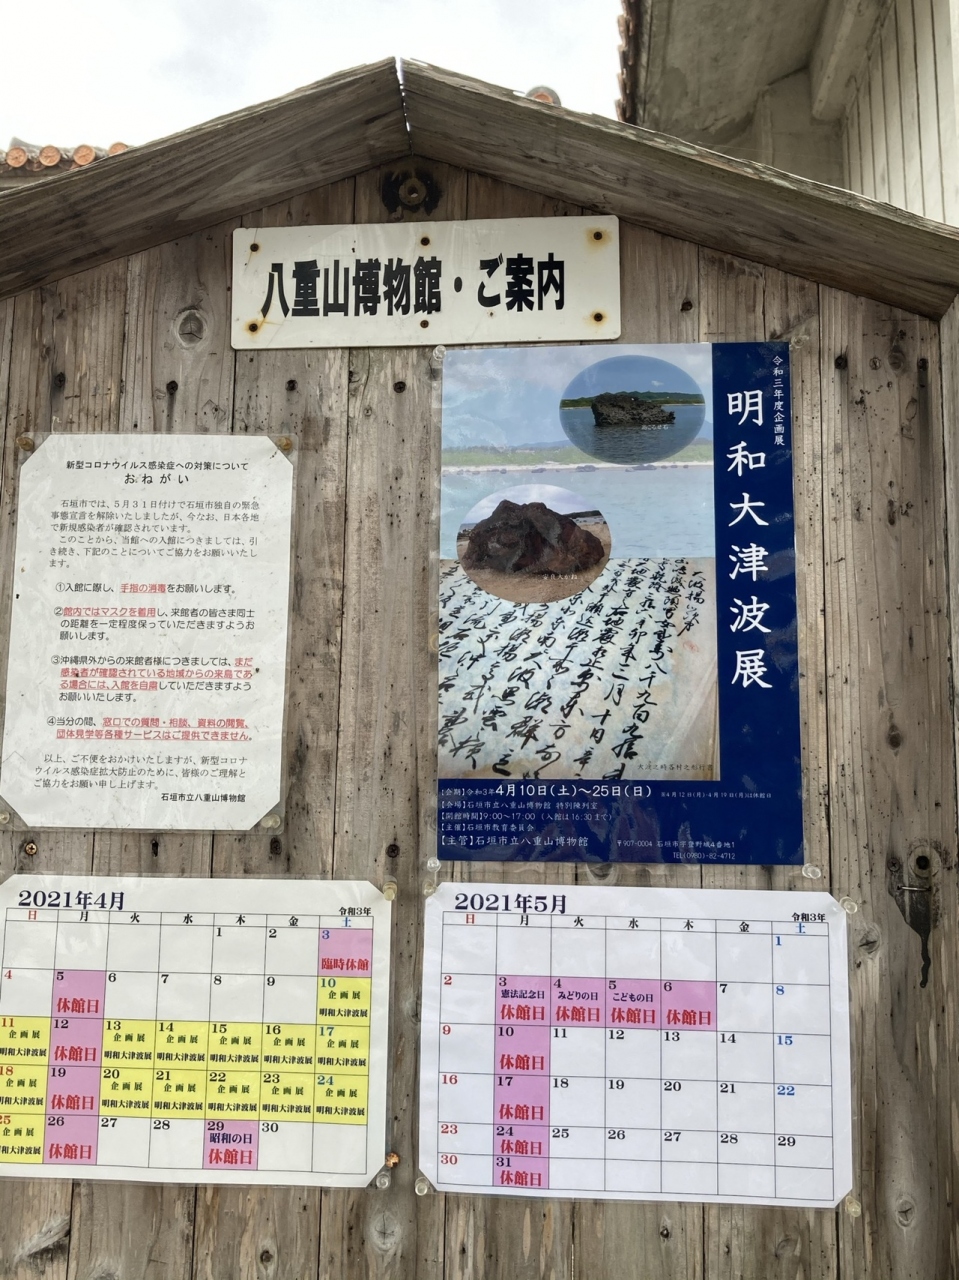 八重山博物館・ご案内
新型コロナウイルス感染症への対策について
おねがい
石垣市では、５月３１日付けで石垣市独自の緊急
事態宣言を解除いたしましたが、今なお、日本各地
で新規感染者が確認されています。
このことから、当館への入館につきましては、引
き続き、下記のことについてご協力をお願いいたし
ます。
①入館に際し、手指の消毒をお願いします。
②館内ではマスクを着用し、来館者の皆さま同士
の距離を一定程度保っていただきますようお
願いします。
③沖縄県外からの来館者様につきましては、まだ
感染者が確認されている地域からの来島であ
る場合には、入館を自粛していただきますよう
お願いいたします。
④当分の間、窓口での質問・相談、資料の閲覧、
団体見学等各種サービスはご提供できません。
以上、ご不便をおかけいたしますが、新型コロナ
ウイルス感染症拡大防止のために、皆様のご理解と
ご協力をお願い申し上げます。
石垣市立八重山博物館
令和三年度企画展
明和大津波展
【会期】令和3年4月10日(土)～25日(日) ※4月12日(月)・4月19日(月)は休館日
【会場】石垣市立八重山博物館 特別陳列室
【開館時間】9:00～17:00 (入館は16:30まで)
【主催】石垣市教育委員会
【主管】石垣市立八重山博物館
〒907-0004 石垣市字登野城4番地1
TEL(0980)-82-4712
2021年4月
令和3年
日 月 火 水 木 金 土
1 2 3
臨時休館
4 5 6 7 8 9 10
休館日 企画展
明和大津波展
11 12 13 14 15 16 17
企画展 休館日 企画展 企画展 企画展 企画展 企画展
明和大津波展 明和大津波展 明和大津波展 明和大津波展 明和大津波展 明和大津波展
18 19 20 21 22 23 24
企画展 休館日 企画展 企画展 企画展 企画展 企画展
明和大津波展 明和大津波展 明和大津波展 明和大津波展 明和大津波展 明和大津波展
25 26 27 28 29 30
企画展 休館日 昭和の日
明和大津波展 休館日
2021年5月
令和3年
日 月 火 水 木 金 土
1
2 3 4 5 6 7 8
憲法記念日 みどりの日 こどもの日
休館日 休館日 休館日 休館日
9 10 11 12 13 14 15
休館日
16 17 18 19 20 21 22
休館日
23 24 25 26 27 28 29
休館日
30 31
休館日